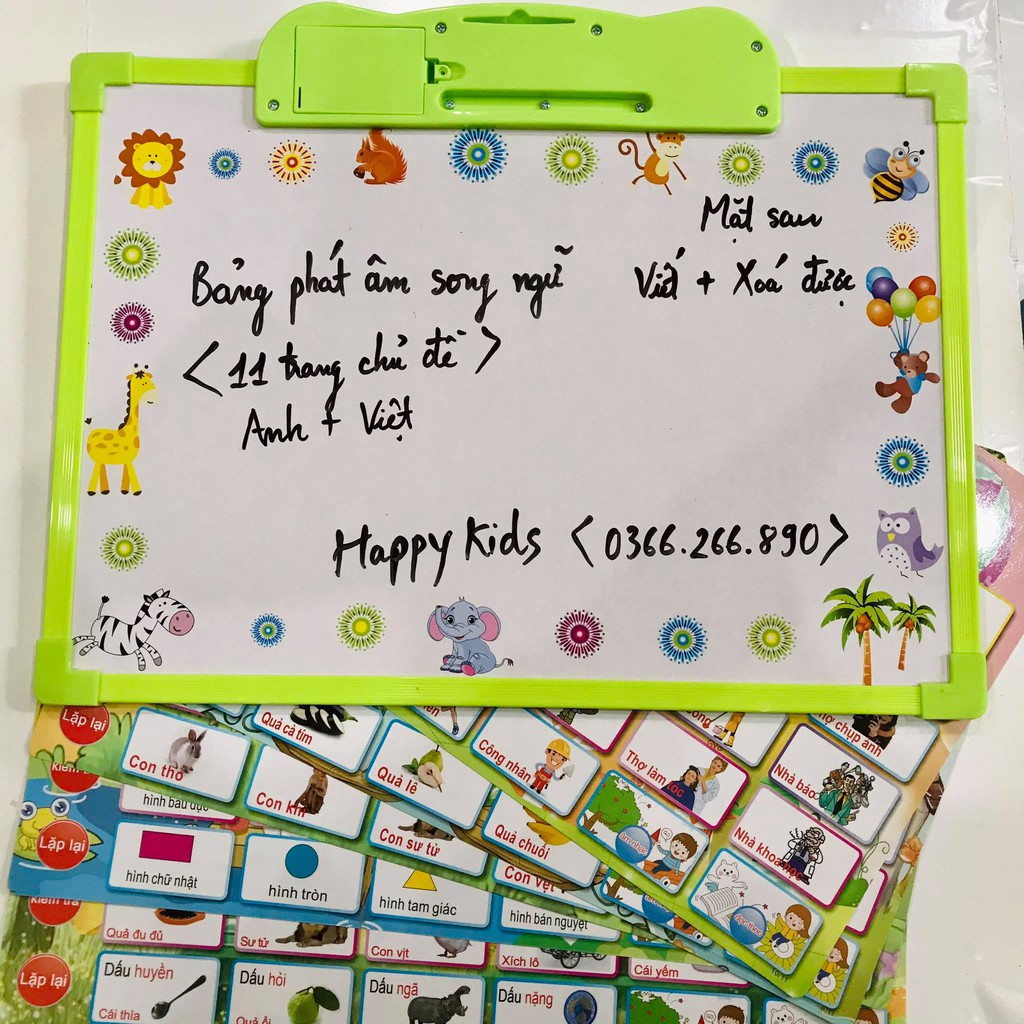 Mặt sau
Bảng phát âm song ngữ
Viết + Xoá được
<11 trang chủ đề>
Anh + Việt
Happy Kids <0366.266.890>
Lặp lại
Con thỏ
Quả cà tím
Quả lê
Công nhân
Thợ làm tóc
Nhà báo
chụp ảnh
kiểm tra
hình bầu dục
Con khỉ
Con sư tử
Quả chuối
Âm nhạc
Nhà khoa học
Lặp lại
hình chữ nhật
hình tròn
hình tam giác
hình bán nguyệt
Con vẹt
kiểm tra
Quả đu đủ
Sư tử
Con vịt
Xích lô
Cái yếm
Lặp lại
Dấu huyền
Cái thìa
Dấu hỏi
Quả ổi
Dấu ngã
Dấu nặng